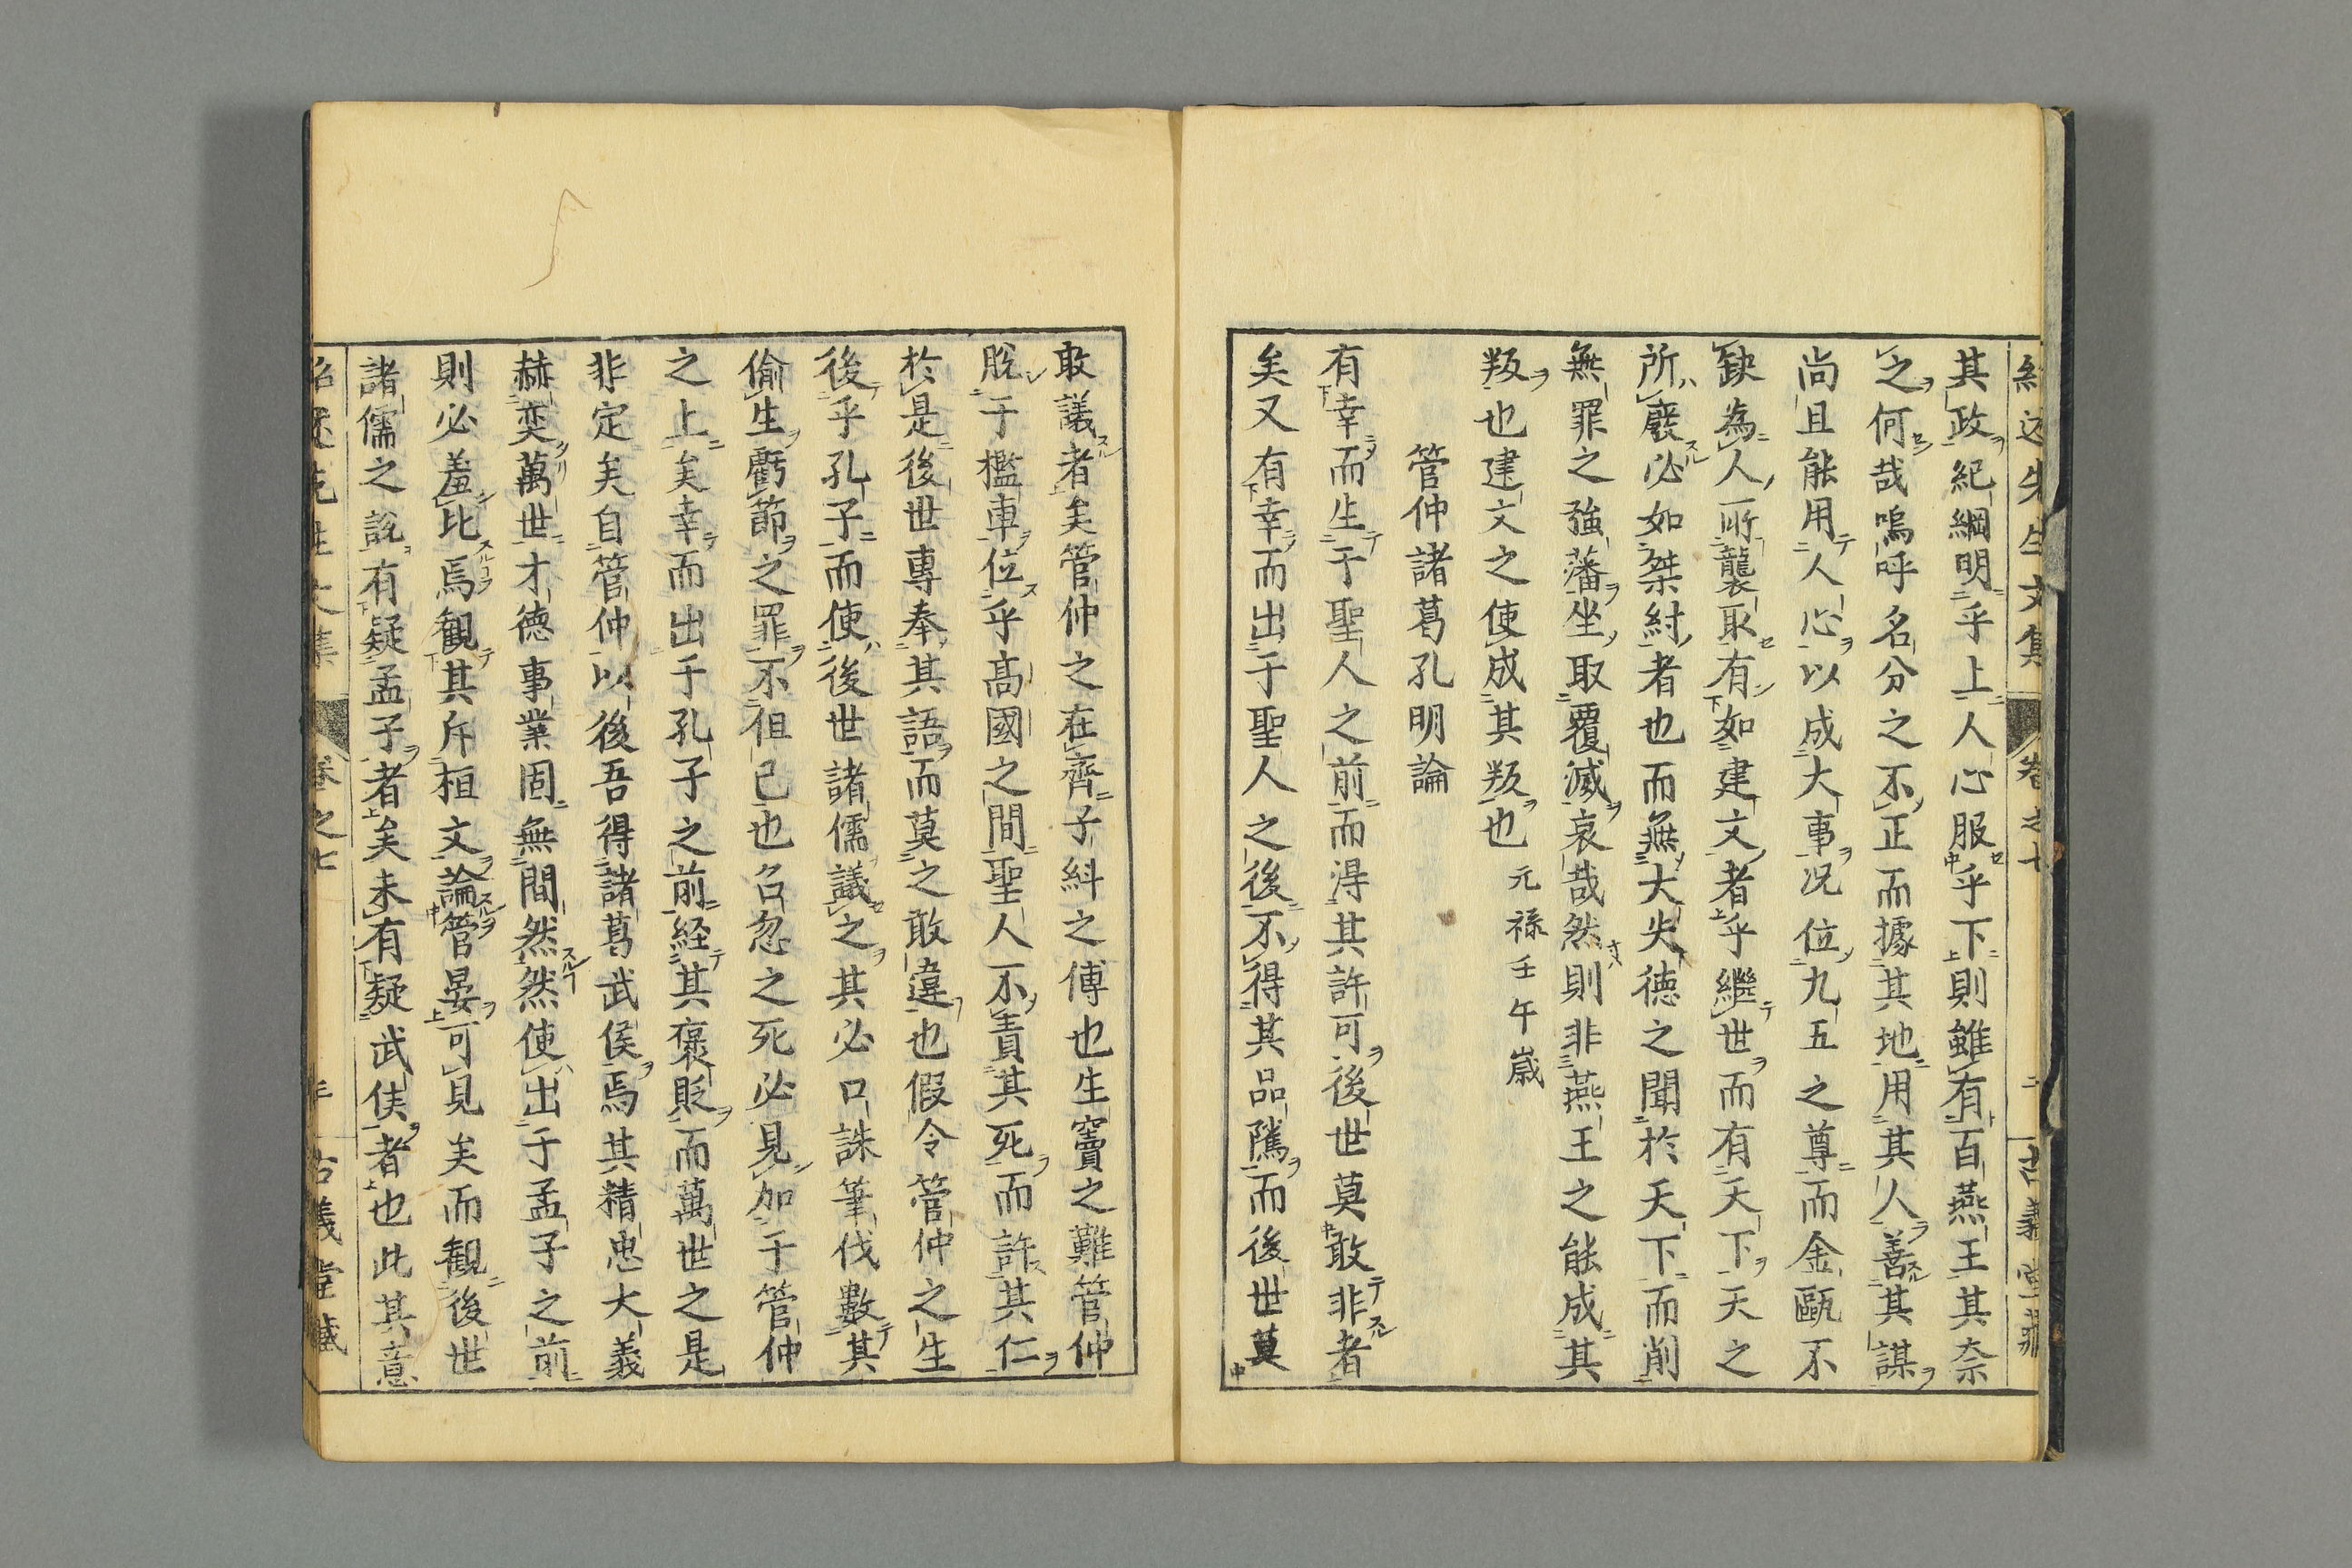 紹述先生文集 卷之七 二 古義堂藏
其政紀綱明乎上人心服乎下則雖有百燕王其奈
之何哉嗚呼名分之不正而據其地用其人善其謀
尚且能用人心以成大事况位九五之尊而金甌不
缺為人所襲取有如建文者乎繼世而有天下天之
所廢必如桀紂者也而無大失徳之聞於天下而削
無罪之強藩坐取覆滅哀哉然則非燕王之能成其
叛也建文之使成其叛也 元禄壬午歳
管仲諸葛孔明論
有幸而生于聖人之前而得其許可後世莫敢非者
矣又有幸而出于聖人之後不得其品隲而後世莫
敢議者矣管仲之在齊子糾之傅也生竇之難管仲
脫于檻車位乎高國之間聖人不責其死而許其仁
於是後世專奉其語而莫之敢違也假令管仲之生
後乎孔子而使後世諸儒議之其必口誅筆伐數其
偷生虧節之罪不但已也召忽之死必見加于管仲
之上矣幸而出于孔子之前経其褒貶而萬世之是
非定矣自管仲以後吾得諸葛武侯焉其精忠大義
赫奕萬世才徳事業固無間然然使出于孟子之前
則必羞比焉觀其斥桓文論管晏可見矣而觀後世
諸儒之説有疑孟子者矣未有疑武侯者也此其意
紹述先生文集 卷之七 古義堂藏